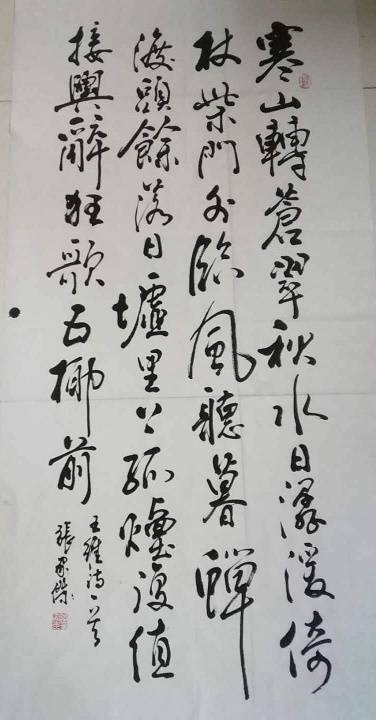 寒山轉蒼翠秋水日潺湲倚
杖柴門外臨風聽暮蟬
渡頭餘落日墟里上孤煙復值
接輿醉狂歌五柳前
王維詩一首
張家傑